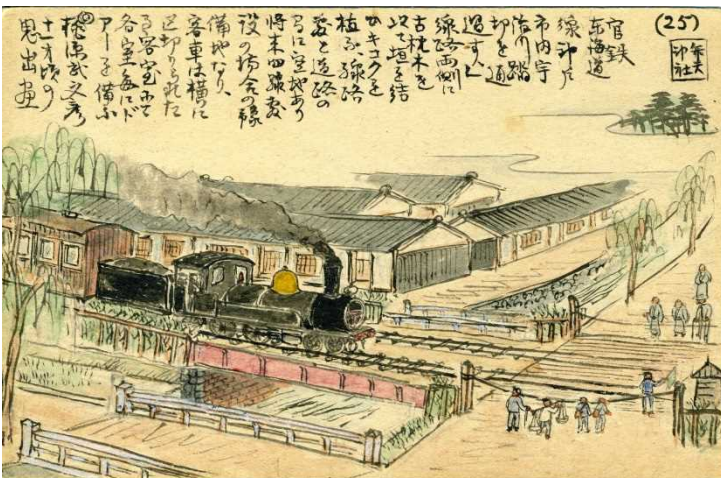 (25)
官鉄
东海道
線神戸
市内宇
治川踏
切を通
過す、
線路両側に
古枕木を
以て垣を結
ひキコクを
植ふ、線路
敷と道路の
間に空地あり
将来四線敷
設の場合の予
備地なり、
客車は横に
区切られた
る客室にて
各室毎にド
アーを備ふ
十一才頃の
思出画